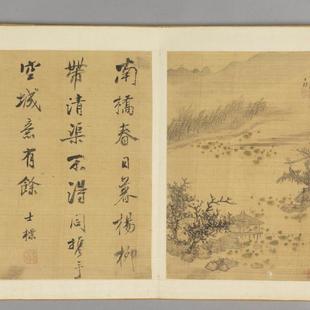 南橋春日暮楊柳
帶清渠不得同携手
空城意有餘 士標